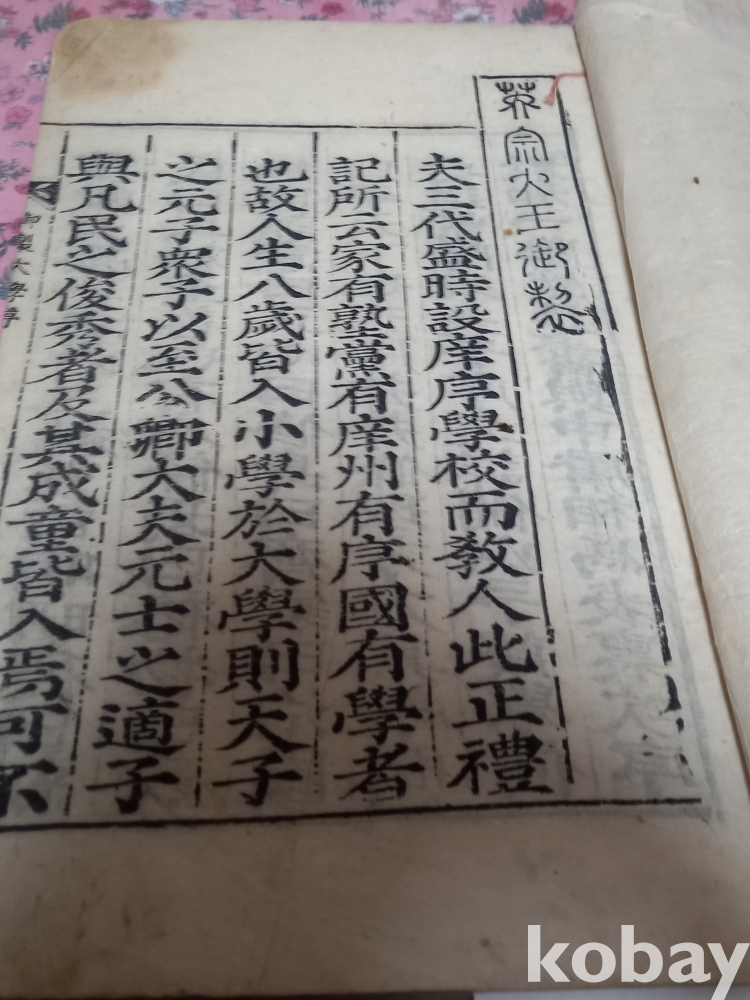 英宗大王御製
夫三代盛時設庠序學校而敎人此正禮
記所云家有塾黨有庠州有序國有學者
也故人生八歲皆入小學於大學則天子
之元子衆子以至公卿大夫元士之適子
與凡民之俊秀者及其成童皆入焉可不
御製大學章
kobay